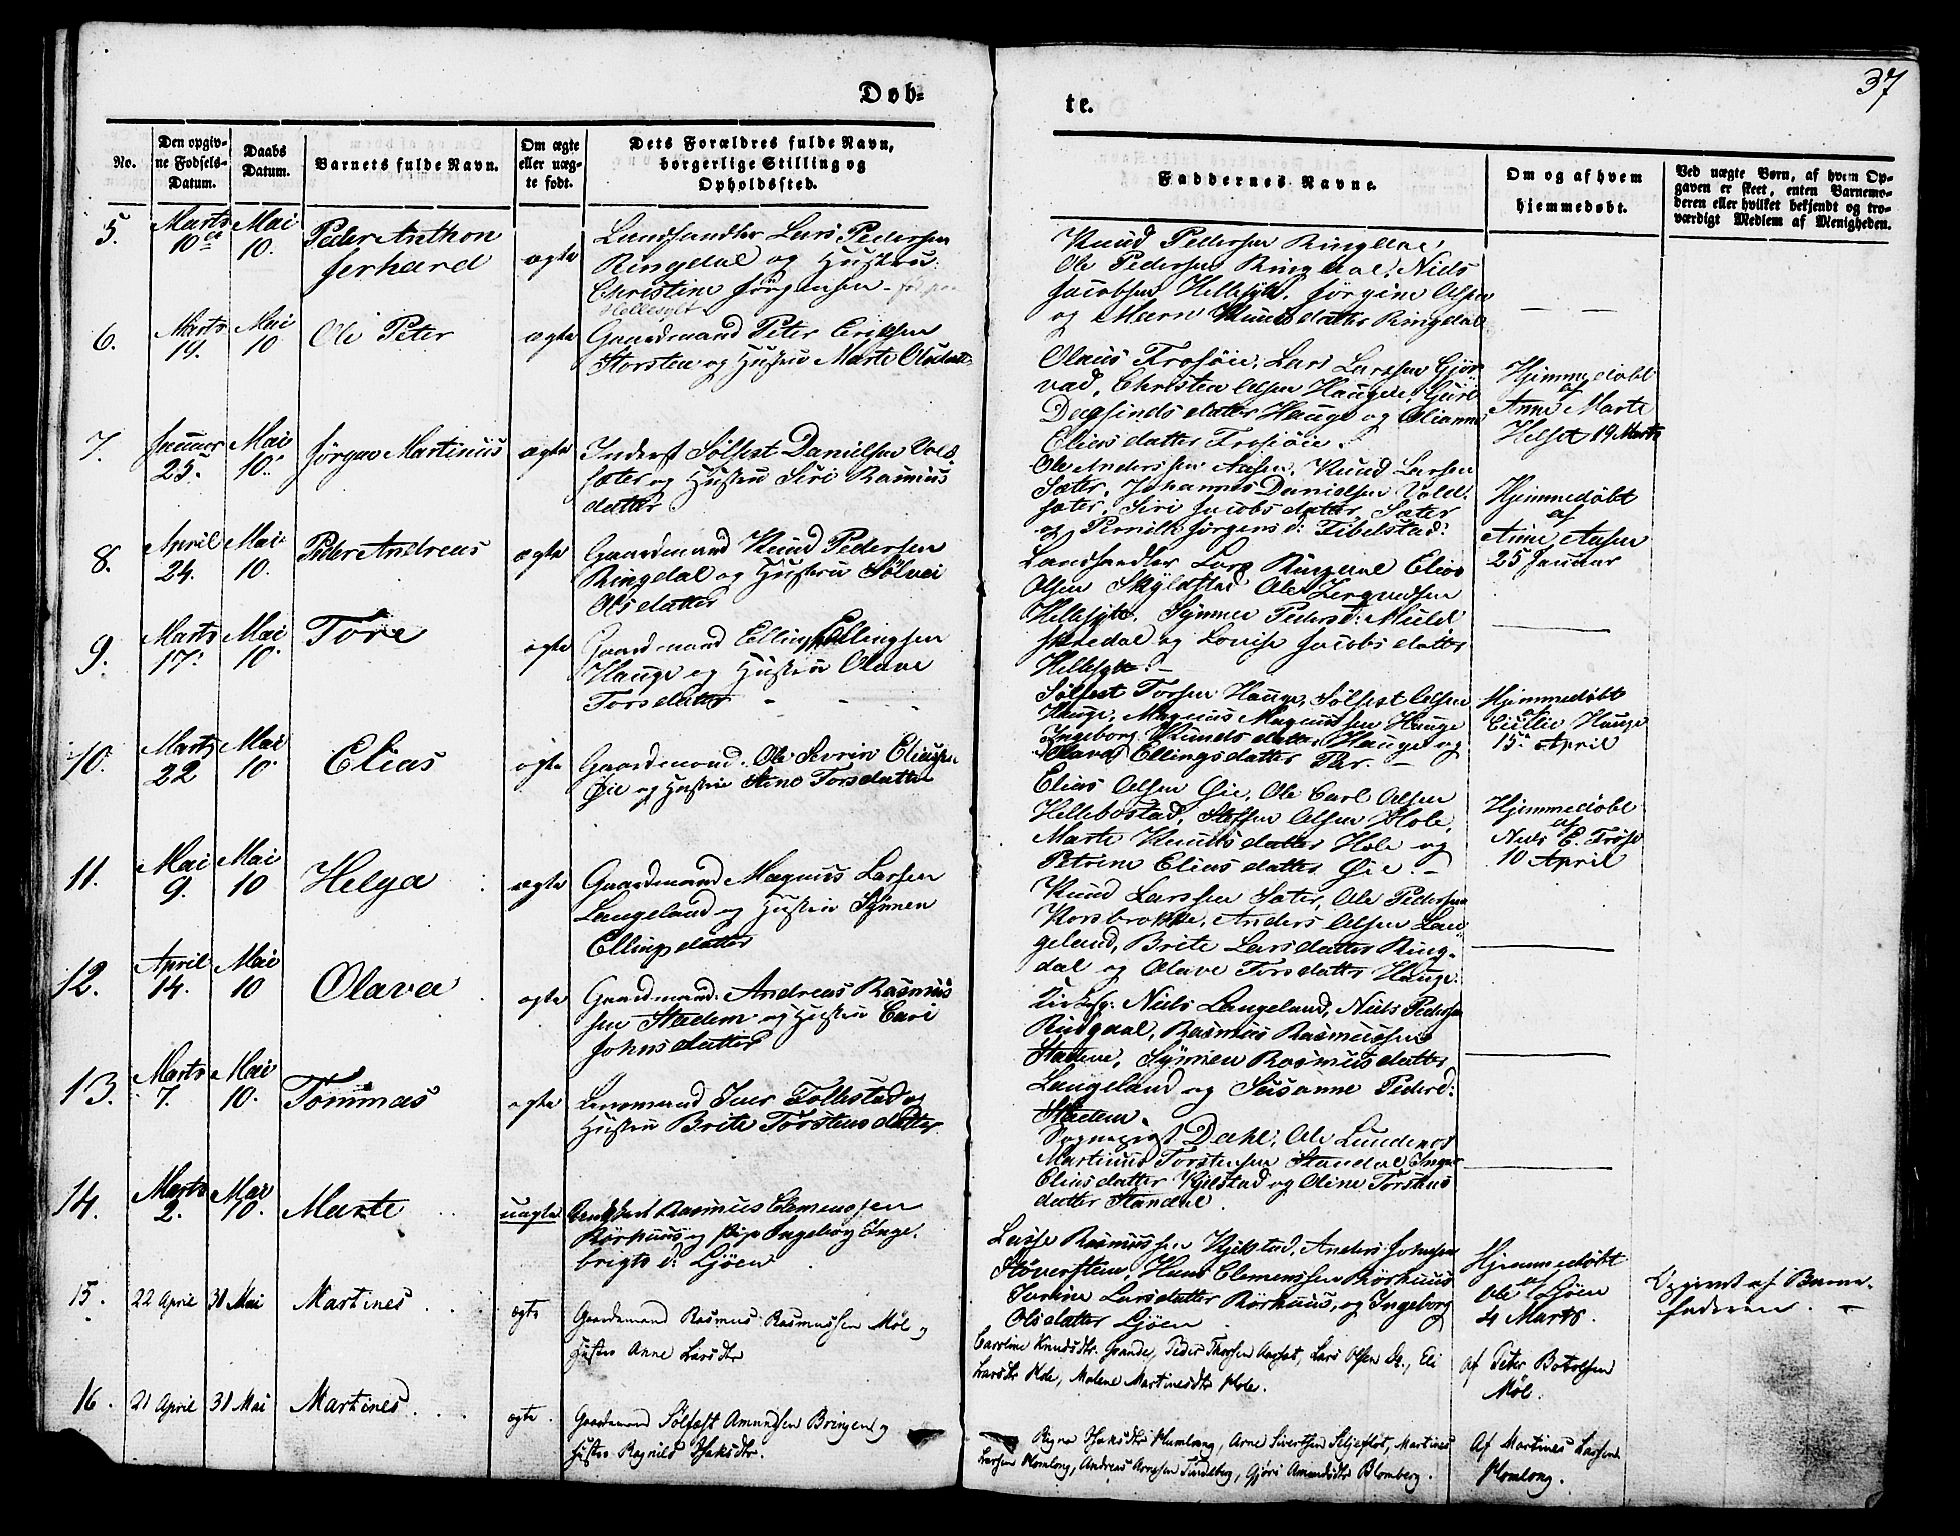 37
Døb-
te.
No.
Den opgiv-
ne Fødsels-
Datum.
Daabs
Datum.
Barnets fulde Navn.
Om ægte
eller uæg-
te født.
Dets Forældres fulde Navn,
borgerlige Stilling og
Opholdssted.
Faddernes Navne.
Om og af hvem
hjemmedøbt.
Ved uægte Børn, af hvem Op-
gaven er skeet, enten Barnemo-
deren eller hvilket bekjendt og tro-
værdigt Medlem af Menigheden.
5.
Marts
10
Mai
10.
Peder Anthon
Gerhard
ægte
Landhandler Lars Pedersen
Ringdal og Hustru
Christine Jörgensen
Hellesylt
Knud Pedersen Ringdal,
Ole Pedersen Ringdal, Niels
Jacobsen Hellesylt, Jörgine Olsen
og Maern Knudsdatter Ringdal
6.
Marts
19.
Mai
10
Ole Peter
ægte
Gaardmand Peter Eriksen
Storsten og Hustru Marte Olsdatt
Olaus Frosöie, Lars Larssen Gjör
vad, Christen Olsen Haugen, Guri
Dagfindsdatter Hauge og Olianna
Eliasdatter Frosöie.
Hjemmedöbt
af
Anne Marte
Helset 19 Marts
7.
Januar
25.
Mai
10.
Jörgen Martinus
ægte
Inderst Sölfest Danielsen Vol
sæter og Hustru Siri Rasmus
datter
Ole Anderssen Aasen, Knud Larsen
Sæter, Johannes Danielsen Vold
sæter, Siri Jacobsdatter Sæter
og Pernille Jörgensd: Fibelstad:
Hjemmedöbt
af
Anne Aasen
25 Januar
8.
April
24.
Mai
10.
Peder Andreas
ægte
Gaardmand Knud Pedersen
Ringdal og Hustru Sölvei
Olsdatter
Landhandler Lars Ringdal Elias
Olsen Skylstad, Ole
Hellesylt, Synnve Pedersd: Muld
skredal og Lovise Jacobsdatter
Hellesylt.
9.
Marts
17.
Mai
10.
Tore
ægte
Gaardmand Elling Ellingsen
Hauge og Hustru Olave
Torsdatter
Sölfest Torsen Hauge, Sölfest Olsen
Hauge, Magnus Magnussen Hauge
Ingeborg Knudsdatter Hauge og
Olave Ellingsdatter
Hjemmedöbt
af
Cicilie Hauge
15. April
10.
Marts
22
Mai
10.
Elias
ægte
Gaardmand Ole Severin Eliassen
Öie og Hustru Ane Torsdatter
Elias Olsen Öie, Ole Carl Olsen
Hellebostad, Steffen Olsen Hole,
Marte Knudsdatter Hole og
Petrine Eliasdatter Öie.
Hjemmedöbt
af
Niels E. Frösö
10 April
11.
Mai
9.
Mai
10
Helga
ægte
Gaardmand Magnus Larsen
Langeland og Hustru Synnen
Ellingsdatter
Knud Larssen Sæter, Ole Pedersen
Korsbrække, Anders Olsen Lan
geland, Brite Larsdatter Ring-
dal og Olave Torsdatter Hauge.
12.
April
14.
Mai
10
Olava
ægte
Gaardmand Andreas Rasmus
sen Stadem og Hustru Cari
Johnsdatter
Niels Langeland, Niels Pedersen
Ringdal, Rasmus Rasmussen
Stadem, Synnen Rasmusdatter
Langeland og Susanne Pedersd:
Stadem.
13.
Marts
7.
Mai
10.
Tommas
ægte
Lensmand Iver Follestad og
Hustru Brite Torstensdatter
Sogneprest Dahl, Ole Lundenes
Martinus Torstensen Standal, Inge
Eliasdatter Kjelstad og Oline Torstens
datter Standal.
14.
Marts
2.
Mai
10.
Marte
uægte
Ungkarl Rasmus Clemenssen
Rörhuus og Pige Ingeborg Inge
brigts d: Ljöen
Lasse Rasmussen Kjelstad, Anders Johnsen
Stöversteen, Hans Clemenssen Rörhuus
Larsdatter Rörhuus, og Ingeborg
Olsdatter Ljöen
Hjemmedöbt
af
Ole Ljöen
4 Marts.
Opgivet af Barne-
faderen.
15.
22 April
31 Mai
Martines
ægte
Gaardmand Rasmus Rasmussen Möl og
Hustru Anne Larsdtr
Caroline Knudsdtr. Grande, Peder Thorsen Aaset, Lars Olsen Do., Eli
Larsdtr Hole, Malene Martinesdtr Hole.
Af Peter Botolfsen
Möl.
16.
21 April
31 Mai
Martines
ægte.
Gaardmand Sölfæst Amundsen Bringen og
Hustru Ragnild Isaksdtr.
Ragna Isaksdtr Homlong, Arne Sivertsen Seljeflot, Martines
Larsen Homlong, Andreas Arnesen Indreberg, Gjöri Amundsdtr Blomberg.
Af Martines Larsen
Homlong.